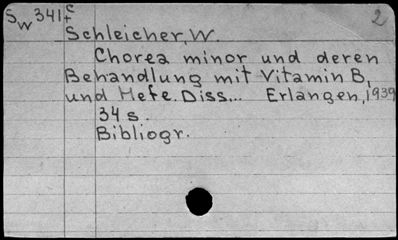 Sw 341 c+ 2
Schleicher, W.
Chorea minor und deren
Behandlung mit Vitamin B,
und Hefe. Diss... Erlangen, 1939
34 s.
Bibliogr.